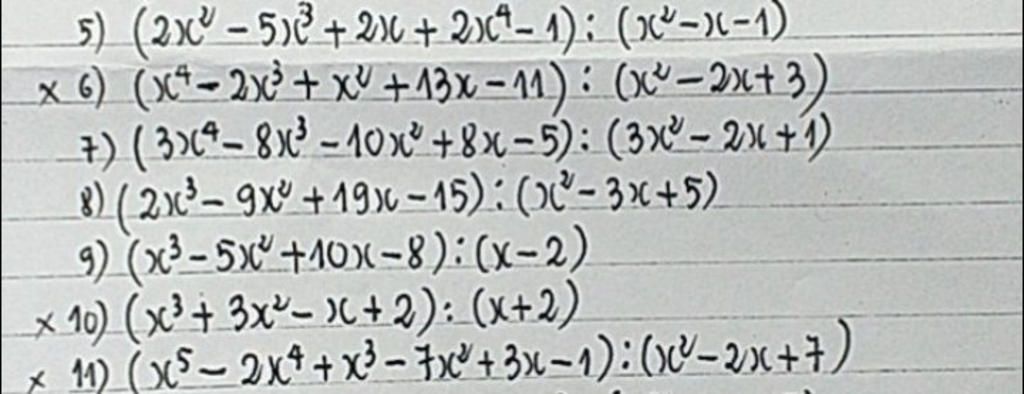 5) (2x² - 5x³ + 2x + 2x⁴ - 1) : (x² - x - 1)
x 6) (x⁴ - 2x³ + x² + 13x - 11) : (x² - 2x + 3)
7) (3x⁴ - 8x³ - 10x² + 8x - 5) : (3x² - 2x + 1)
8) (2x³ - 9x² + 19x - 15) : (x² - 3x + 5)
9) (x³ - 5x² + 10x - 8) : (x - 2)
x 10) (x³ + 3x² - x + 2) : (x + 2)
x 11) (x⁵ - 2x⁴ + x³ - 7x² + 3x - 1) : (x² - 2x + 7)